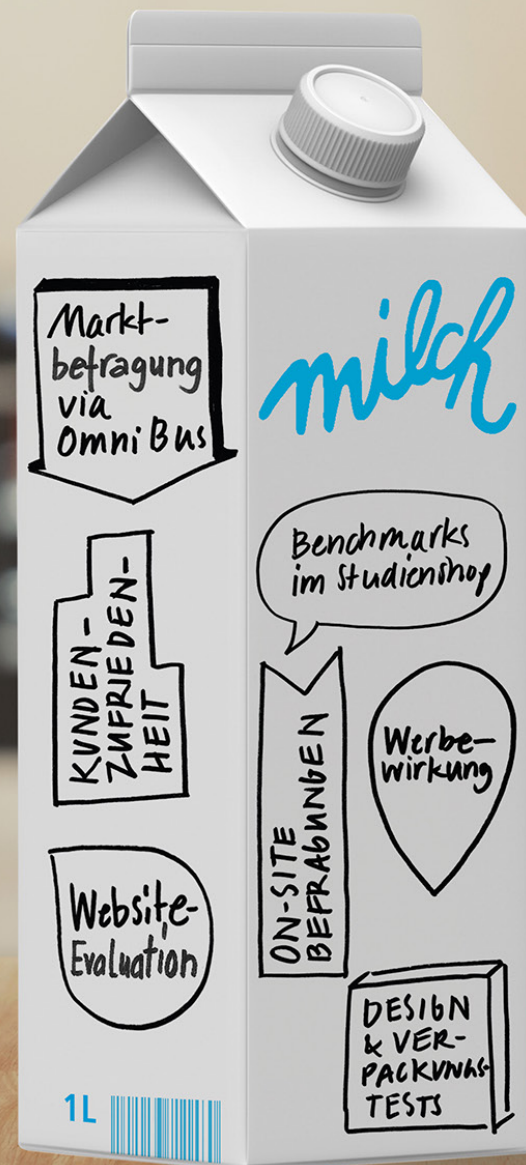 Markt-
befragung
via
OmniBus
KUNDEN-
ZUFRIEDEN-
HEIT
Website-
Evaluation
1L
milch
Benchmarks
im Studienshop
ON-SITE
BEFRAGUNGEN
Werbe-
wirkung
DESIGN
& VER-
PACKUNGS-
TESTS